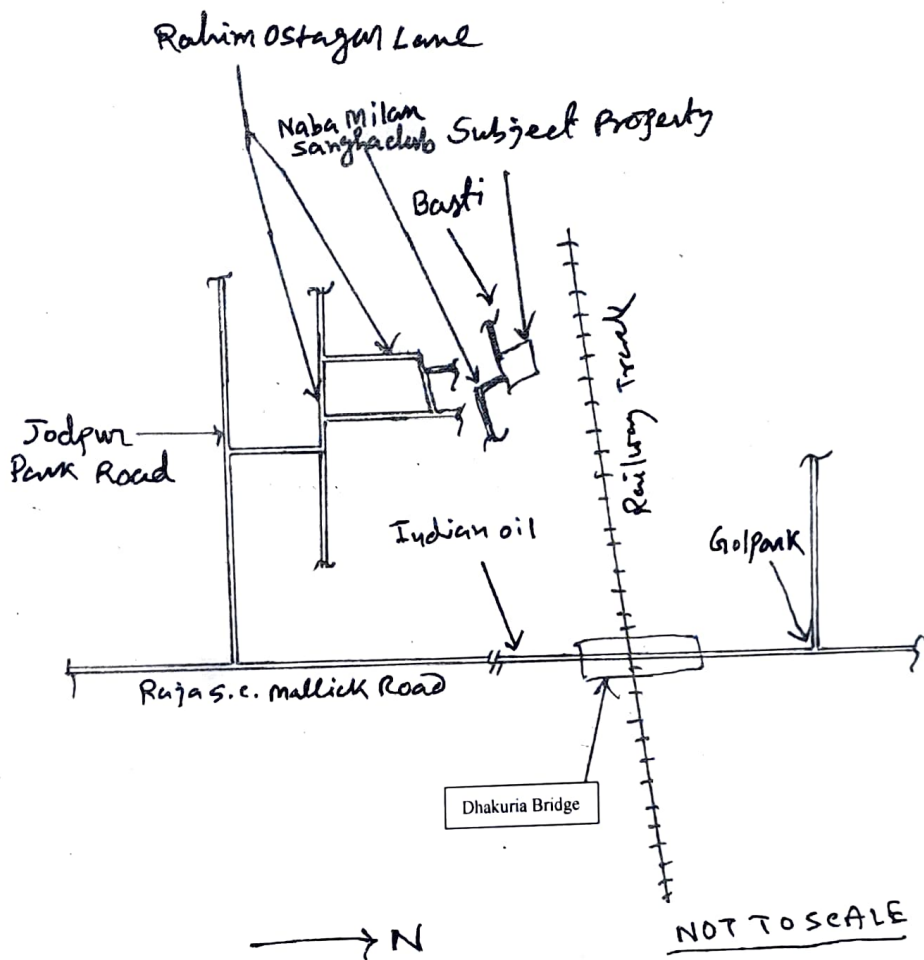 Rahim Ostagar Lane
Naba Milan
Sangha club
Subject Property
Basti
Railway Track
Jodpur
Park Road
Indian oil
Golpark
Raja S.C. Mallick Road
Dhakuria Bridge
N
NOT TO SCALE